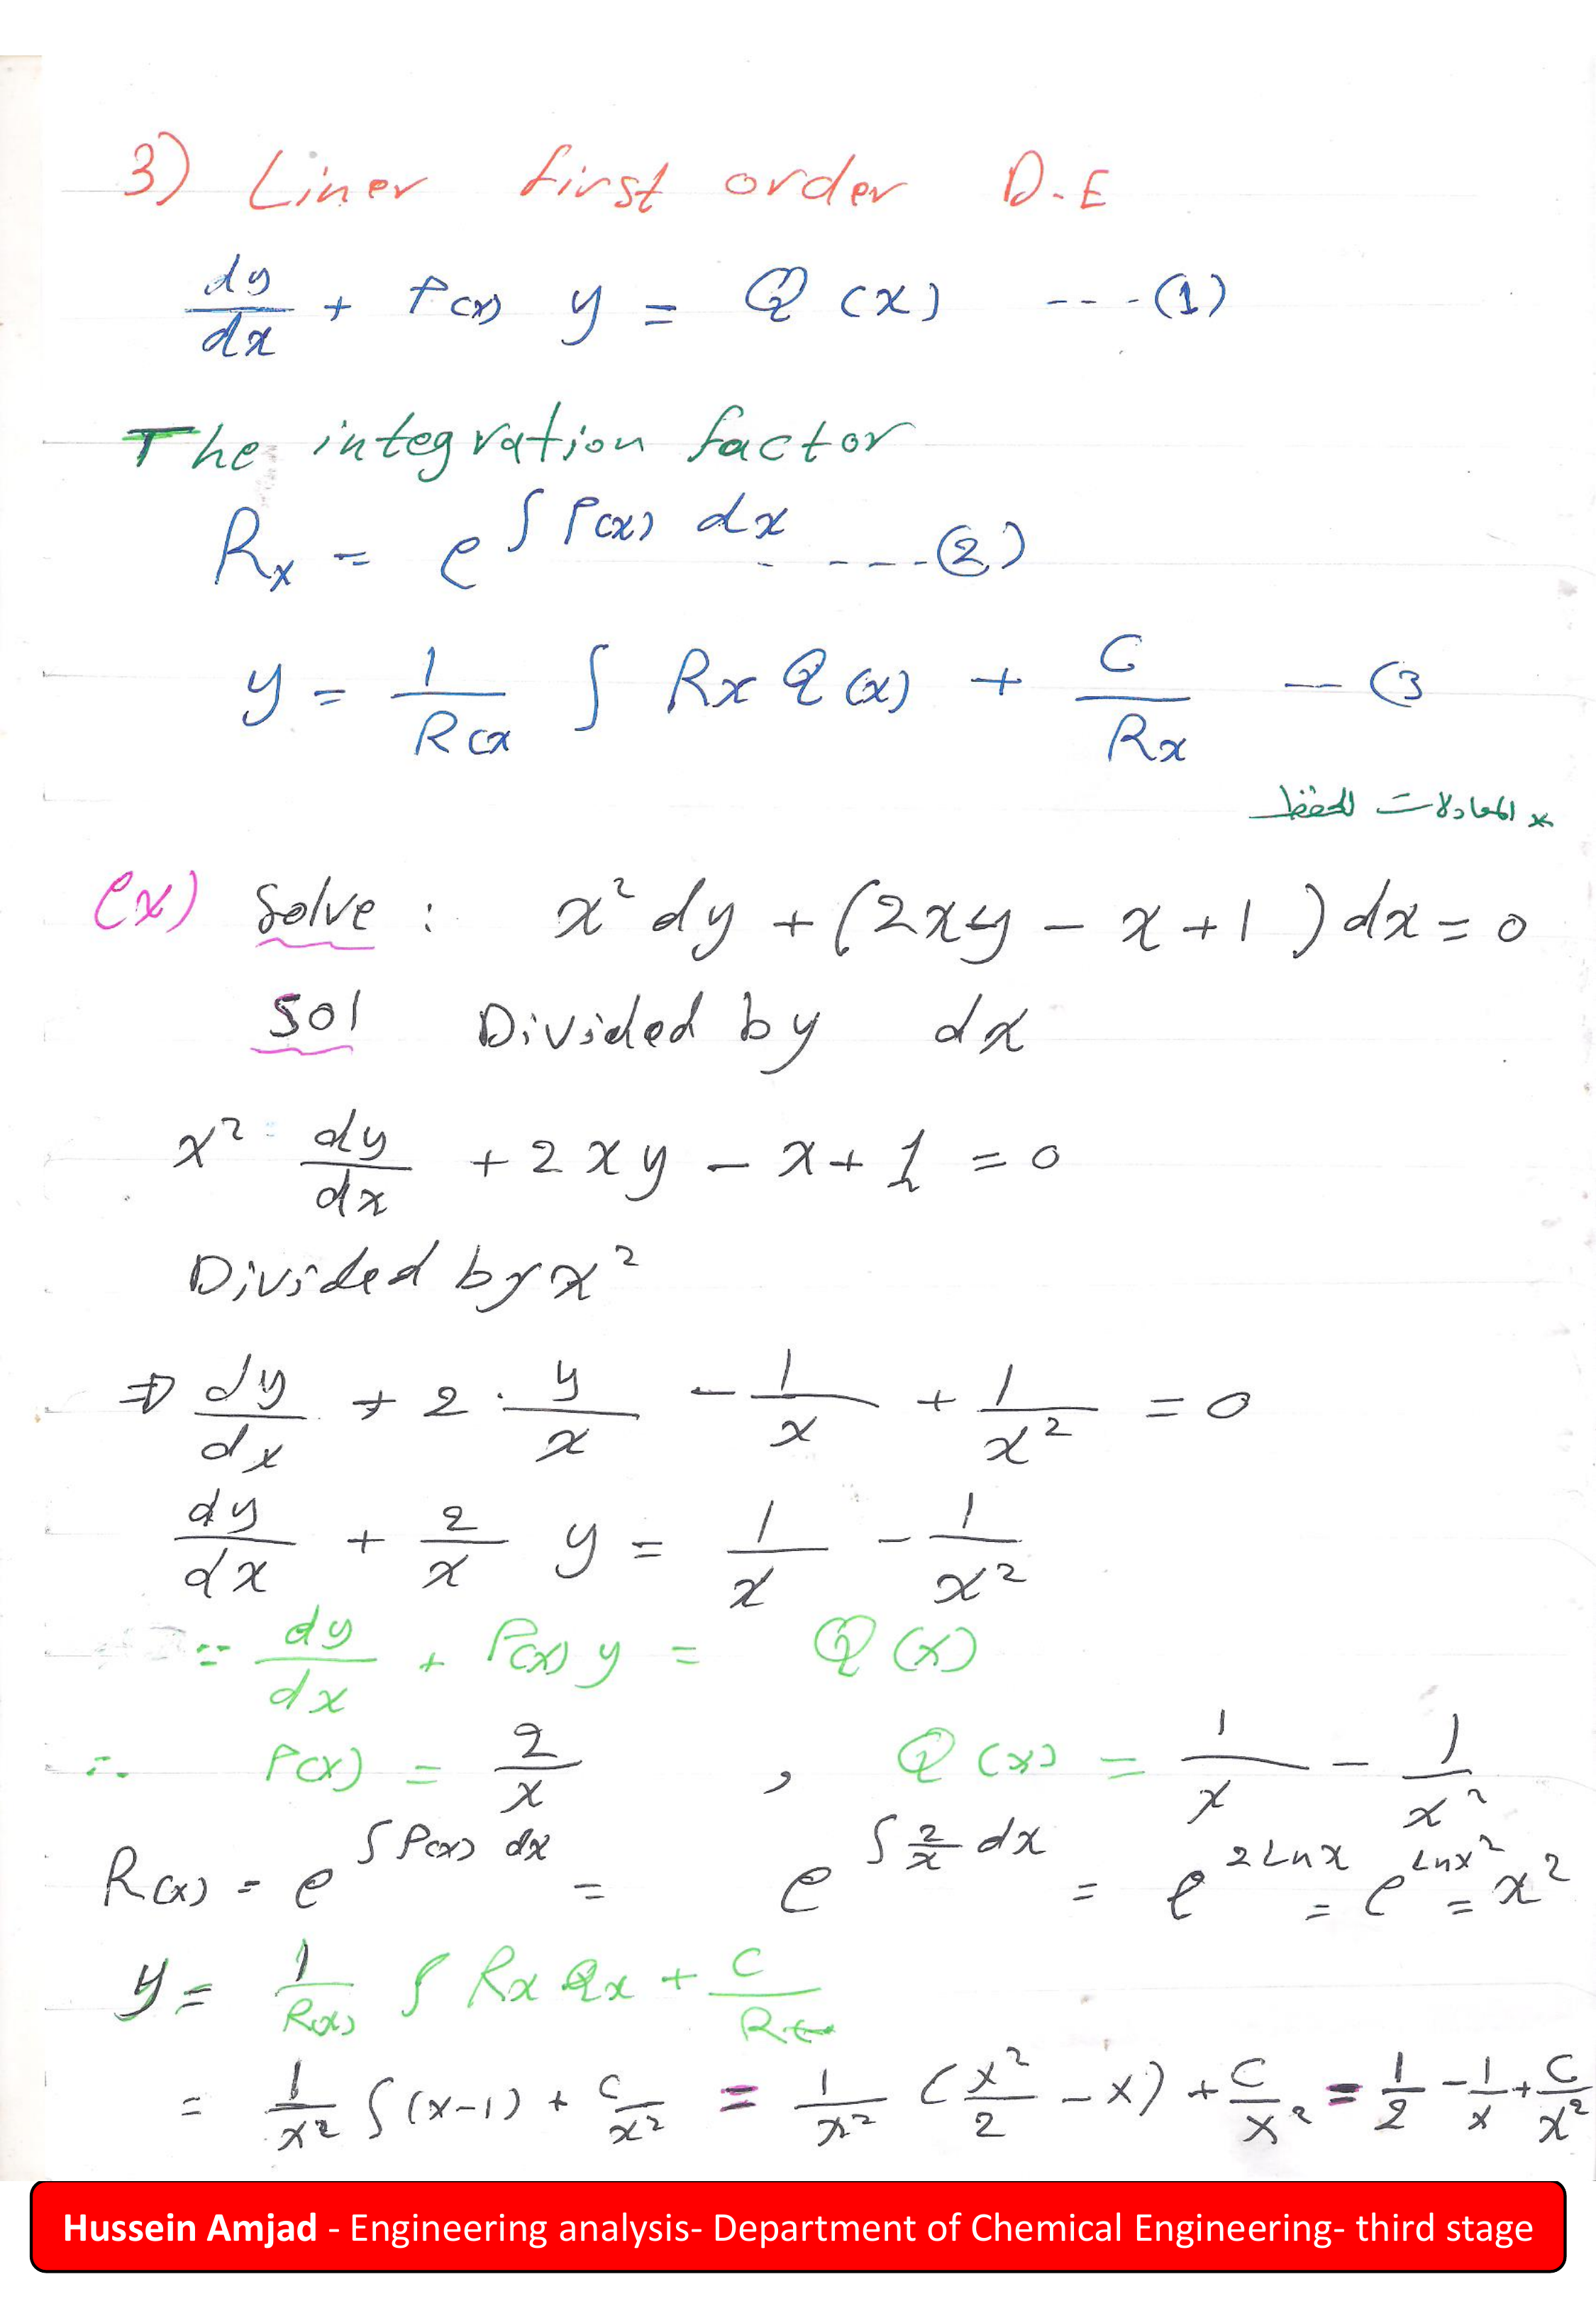 3) Liner first order D.E
dy/dx + P(x) y = Q(x) ---(1)
The integration factor
Rx = e^∫P(x) dx . ---(2)
y = 1/R(x ∫ Rx Q(x) + C/Rx -- (3
* المعادلات للحفظ
ex) Solve : x² dy + (2xy - x + 1) dx = 0
Sol Divided by dx
x² dy/dx + 2xy - x + 1 = 0
Divided by x²
⇒ dy/dx + 2 · y/x - 1/x + 1/x² = 0
dy/dx + 2/x y = 1/x - 1/x²
:: dy/dx + P(x) y = Q(x)
∴ P(x) = 2/x , Q(x) = 1/x - 1/x²
R(x) = e^∫P(x) dx = e^∫2/x dx = e^2Lnx = e^Lnx² = x²
y = 1/R(x) ∫ Rx Qx + C/Rx
= 1/x² ∫(x-1) + C/x² = 1/x² (x²/2 - x) + C/x² = 1/2 - 1/x + C/x²
Hussein Amjad - Engineering analysis- Department of Chemical Engineering- third stage